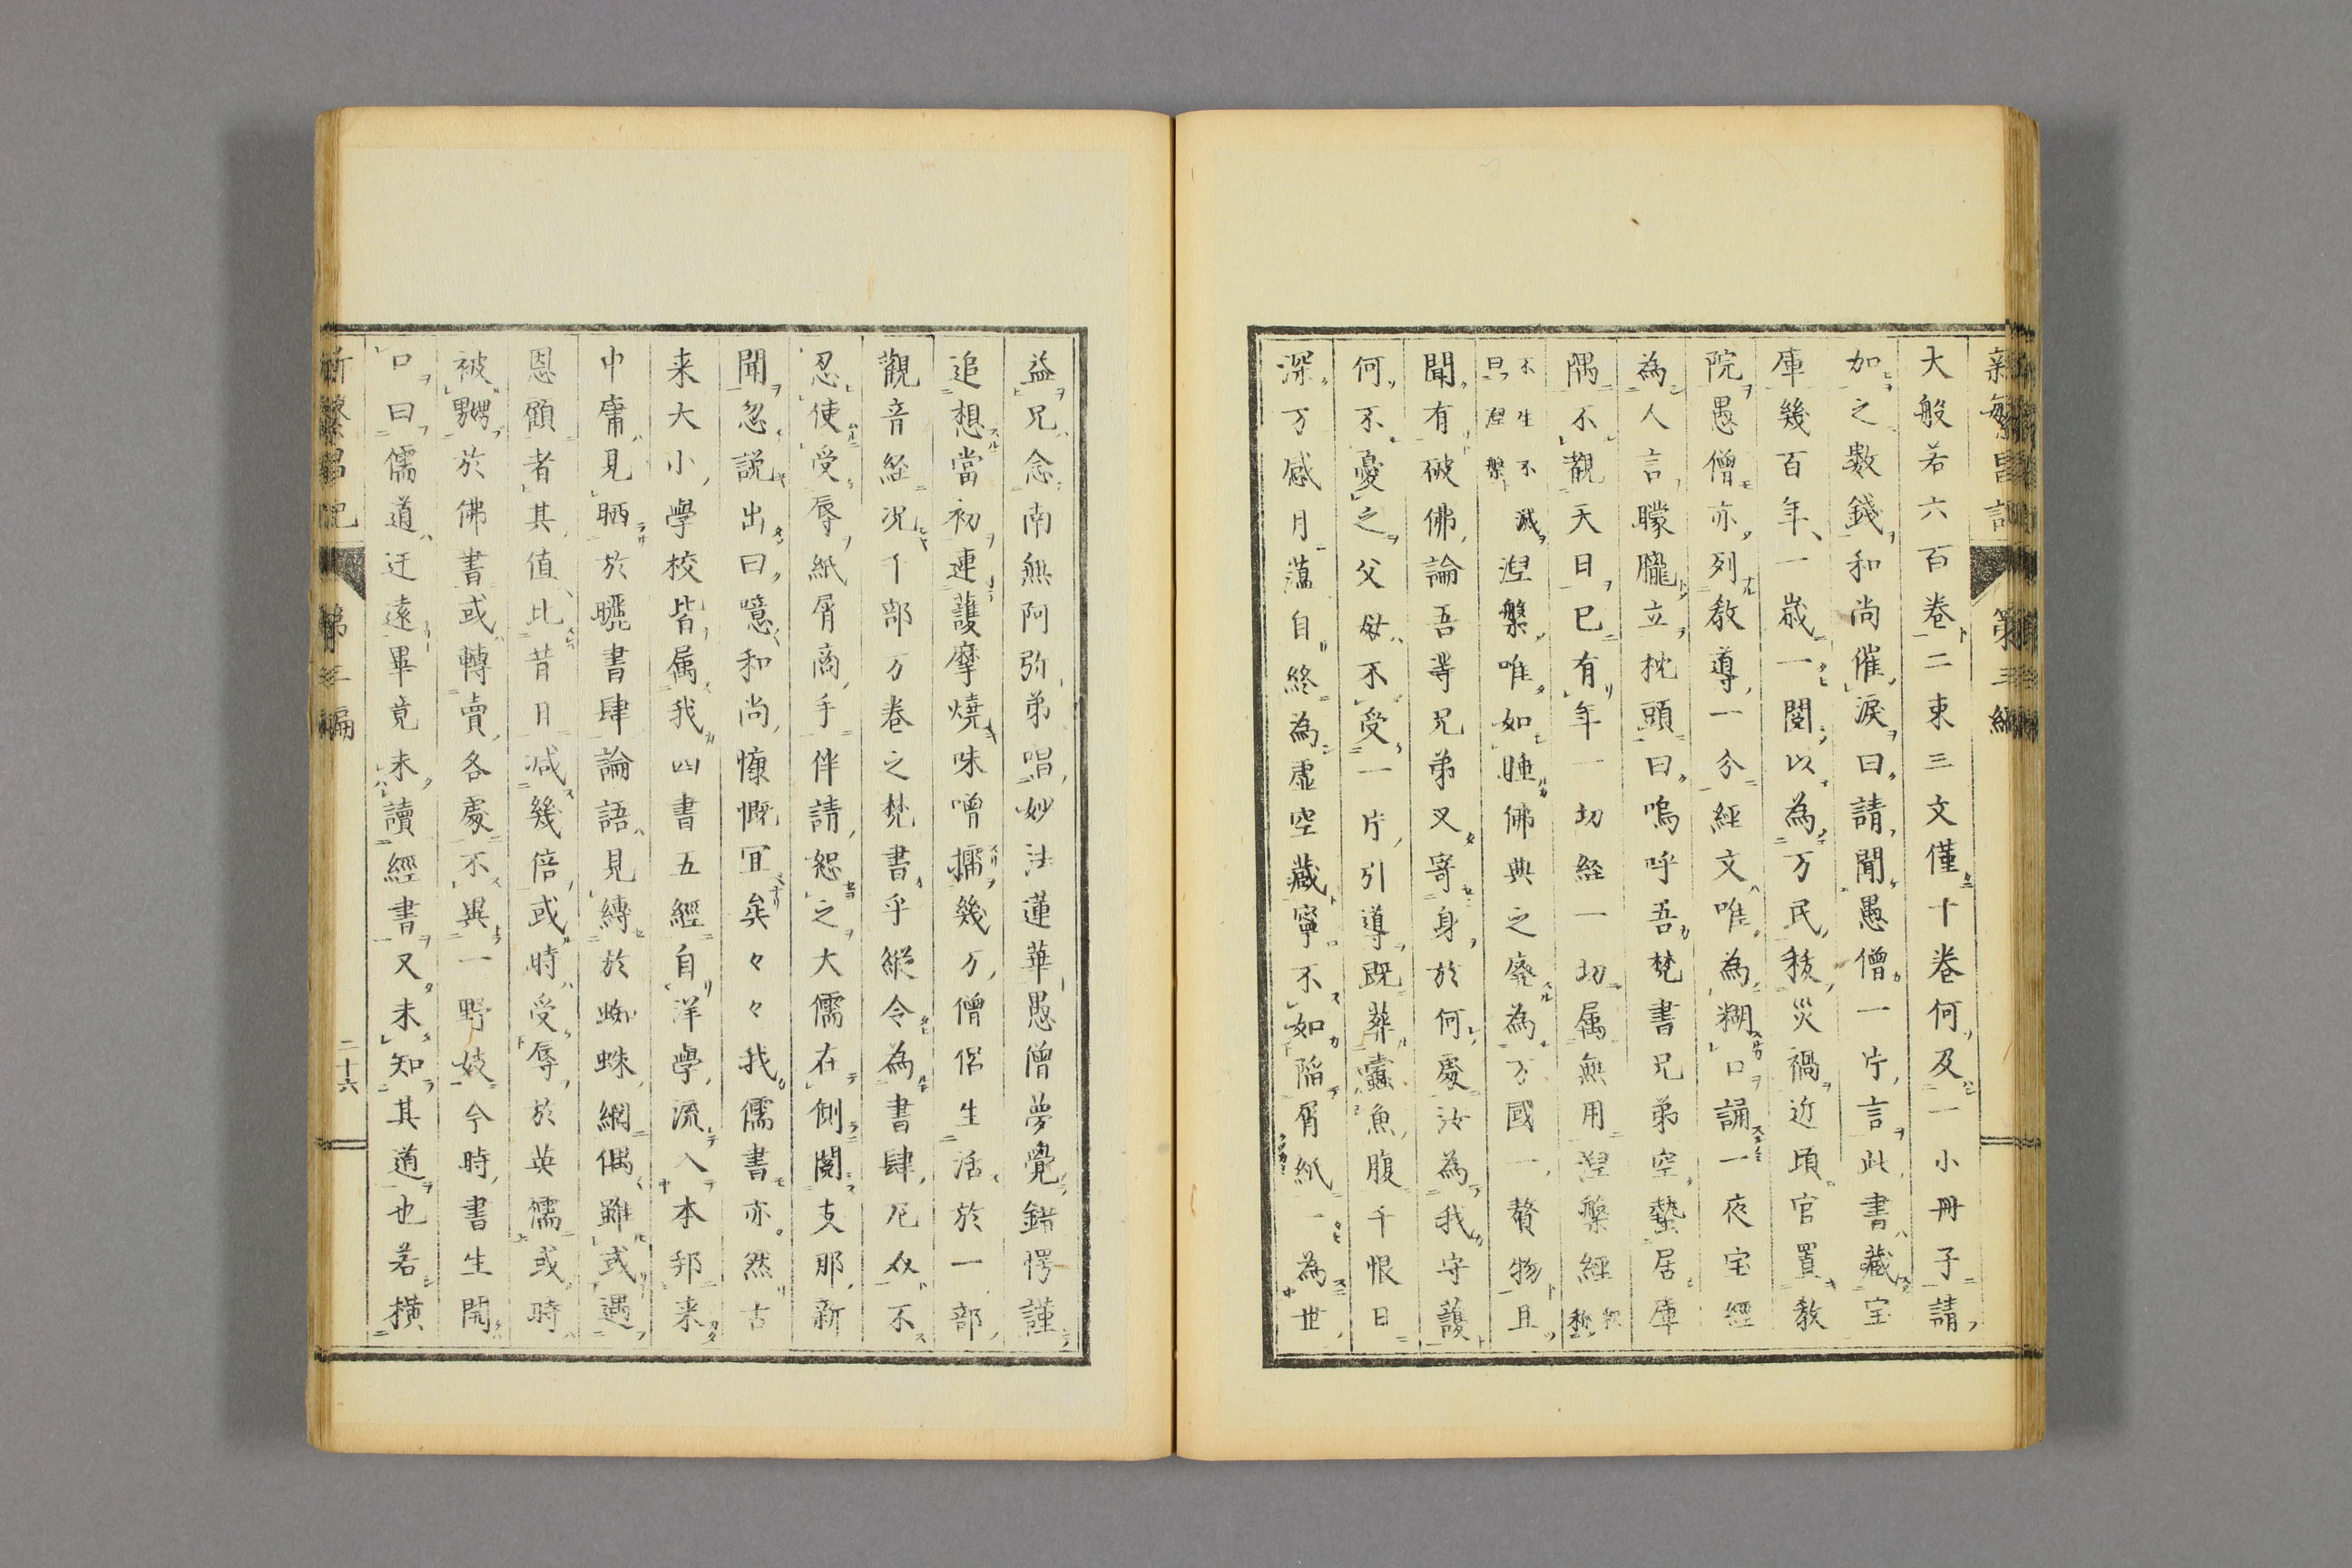 大般若六百卷二束三文僅十卷何及一小冊子請
加之數錢和尚催涙曰請聞愚僧一片言此書藏宝
庫幾百年一歳一閲以為万民祓災禍近頃官置教
院愚僧亦列教導一分經文唯為糊口誦一夜宝經
為人言矇朧立枕頭曰嗚呼吾梵書兄弟空蟄居庫
隅不觀天日已有年一切経一切属無用涅槃經
不生不滅曰涅槃涅槃唯如睡佛典之廃為万國一贅物且
聞有破佛論吾等兄弟又寄身於何處汝為我守護
何不憂之父母不受一片引導既葬蠹魚腹千恨日
深万感月薀自終為虚空藏寧不如陥屑紙一為世
益兄念南無阿弥弟唱妙法蓮華愚僧夢覺錯愕謹
追想當初連護摩焼味噌擂幾万僧侶生活於一部
觀音経况千部万卷之梵書乎縱令為書肆厄介不
忍使受辱紙屑商手伴請恕之大儒在側閲支那新
聞忽説出曰噫和尚慷慨冝矣々々我儒書亦然古
来大小學校皆属我四書五經自洋學流入本邦来
中庸見晒於曉書肆論語見縛於蜘蛛網偶雖或遇
恩顧者其值比昔日減幾倍或時受辱於英儒或時
被嬲於佛書或轉賣各處不異一野妓今時書生開
口曰儒道迂遠畢竟未讀經書又未知其道也若横
新繁昌記 第三編 二十六